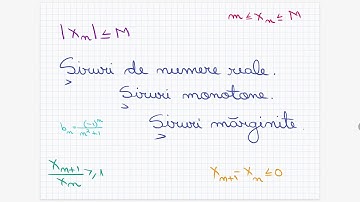 |xₙ| ≤ M
m ≤ xₙ ≤ M
Șiruri de numere reale.
Șiruri monotone.
Șiruri mărginite.
bₙ = (-1)ⁿ/(n²+1)
xₙ₊₁/xₙ ≥ 1
xₙ₊₁ - xₙ ≤ 0